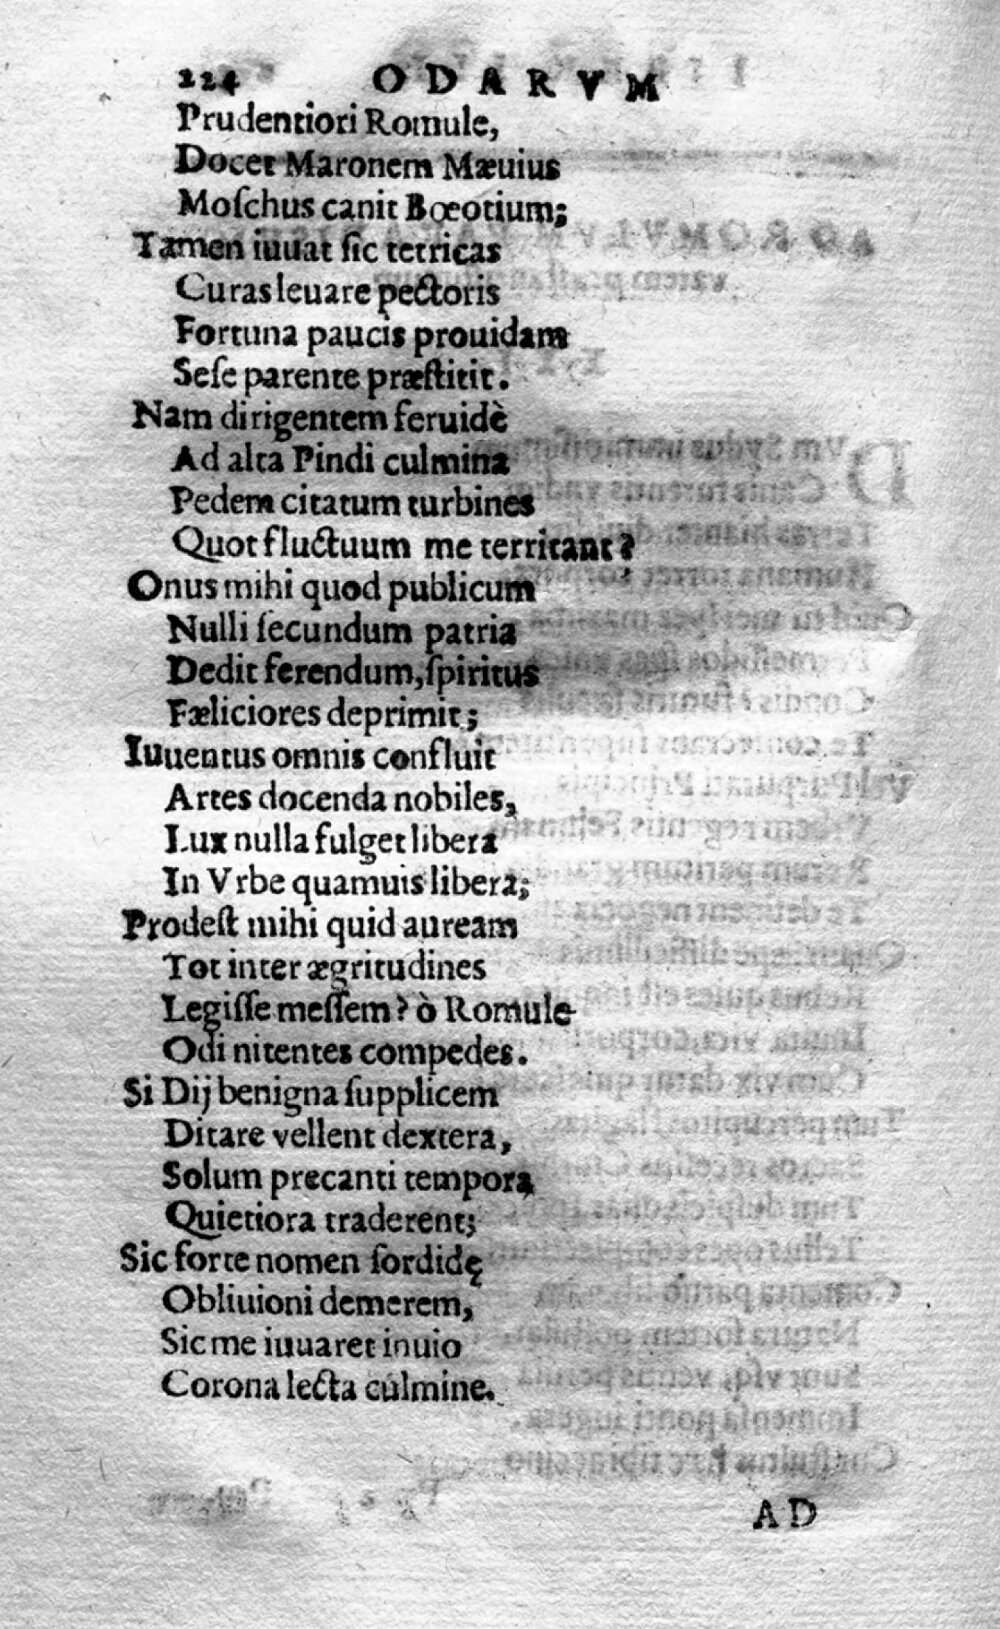 224 ODARVM
Prudentiori Romule,
Docet Maronem Mæuius
Moſchus canit Bœotium;
Tamen iuuat ſic tetricas
Curas leuare pectoris
Fortuna paucis prouidam
Seſe parente præſtitit.
Nam dirigentem feruidè
Ad alta Pindi culmina
Pedem citatum turbines
Quot fluctuum me territant?
Onus mihi quod publicum
Nulli ſecundum patria
Dedit ferendum, ſpiritus
Fæliciores deprimit;
Iuuentus omnis confluit
Artes docenda nobiles,
Lux nulla fulget libera
In Vrbe quamuis libera;
Prodeſt mihi quid auream
Tot inter ægritudines
Legiſſe meſſem? ò Romule
Odi nitentes compedes.
Si Dij benigna ſupplicem
Ditare vellent dextera,
Solum precanti tempora
Quietiora traderent;
Sic forte nomen ſordidę
Obliuioni demerem,
Sic me iuuaret inuio
Corona lecta culmine.
AD